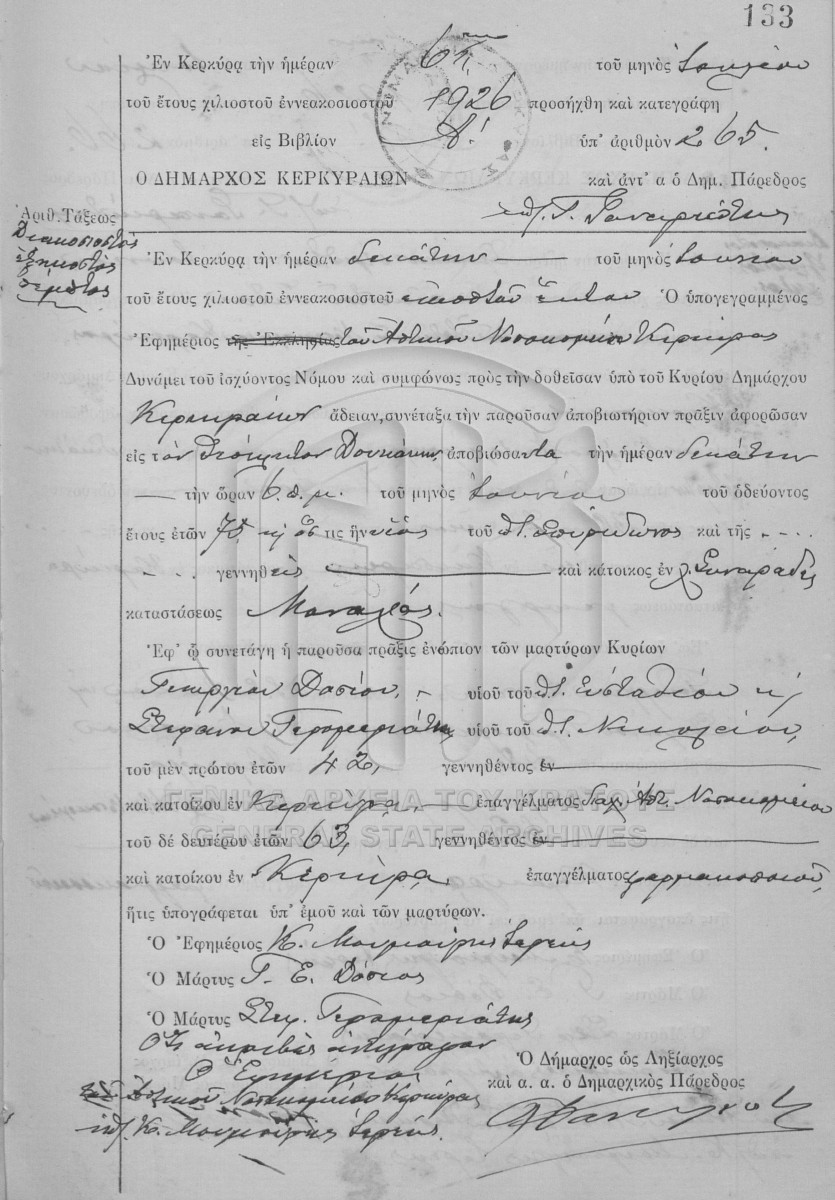 133
Ἐν Κερκύρᾳ τὴν ἡμέραν 6ην τοῦ μηνὸς Ἰουλίου
τοῦ ἔτους χιλιοστοῦ ἐννεακοσιοστοῦ 1926 προσήχθη καὶ κατεγράφη
εἰς Βιβλίον Α! ὑπ' ἀριθμὸν 265.
Ο ΔΗΜΑΡΧΟΣ ΚΕΡΚΥΡΑΙΩΝ καὶ ἀντ' α ὁ Δημ. Πάρεδρος
Ἀριθ. Τάξεως
Διακοσιοστὸς
ἑξηκοστὸς
πέμπτος
Ἐν Κερκύρᾳ τὴν ἡμέραν δεκάτην τοῦ μηνὸς Ἰουνίου
τοῦ ἔτους χιλιοστοῦ ἐννεακοσιοστοῦ εἰκοστοῦ ἕκτου Ὁ ὑπογεγραμμένος
Ἐφημέριος τῆς Ἐκκλησίας τοῦ Ἀστικοῦ Νοσοκομείου Κερκύρας
Δυνάμει τοῦ ἰσχύοντος Νόμου καὶ συμφώνως πρὸς τὴν δοθεῖσαν ὑπὸ τοῦ Κυρίου Δημάρχου
Κερκυραίων ἄδειαν, συνέταξα τὴν παροῦσαν ἀποβιωτήριον πρᾶξιν ἀφορῶσαν
εἰς τὸν Θεόκλητον Δουκάκην ἀποβιώσαντα τὴν ἡμέραν δεκάτην
τὴν ὥραν 6. π. μ. τοῦ μηνὸς Ἰουνίου τοῦ ὁδεύοντος
ἔτους ἐτῶν 75 ὅς τις ἦν υἱὸς τοῦ ποτ. Σπυρίδωνος καὶ τῆς
γεννηθεὶς καὶ κάτοικος ἐν χ. Συναράδες
καταστάσεως Μοναχός.
Ἐφ' ᾧ συνετάγη ἡ παροῦσα πρᾶξις ἐνώπιον τῶν μαρτύρων Κυρίων
Γεωργίου Δασίου, υἱοῦ τοῦ ποτ. Εὐσταθίου κ
Στεφάνου Γερομεριάτη υἱοῦ τοῦ ποτ. Νικολάου,
τοῦ μὲν πρώτου ἐτῶν 42, γεννηθέντος ἐν
καὶ κατοίκου ἐν Κερκύρᾳ, ἐπαγγέλματος διαχ. Ἀστ. Νοσοκομείου
τοῦ δὲ δευτέρου ἐτῶν 63, γεννηθέντος ἐν
καὶ κατοίκου ἐν Κερκύρᾳ, ἐπαγγέλματος φαρμακοποιοῦ,
ἥτις ὑπογράφεται ὑπ' ἐμοῦ καὶ τῶν μαρτύρων.
Ὁ Ἐφημέριος Κ. Μουμούρης Ἱερεύς
Ὁ Μάρτυς Γ. Ε. Δάσιος
Ὁ Μάρτυς Στεφ. Γερομεριάτης
Ὅτι ἀκριβὲς ἀντίγραφον
Ὁ Ἐφημέριος
τοῦ Ἀστικοῦ Νοσοκομείου Κερκύρας
ὑπ. Κ. Μουμούρης Ἱερεύς.
Ὁ Δήμαρχος ὡς Ληξίαρχος
καὶ α. α. ὁ Δημαρχικὸς Πάρεδρος
ΓΕΝΙΚΑ ΑΡΧΕΙΑ ΤΟΥ ΚΡΑΤΟΥΣ
GENERAL STATE ARCHIVES